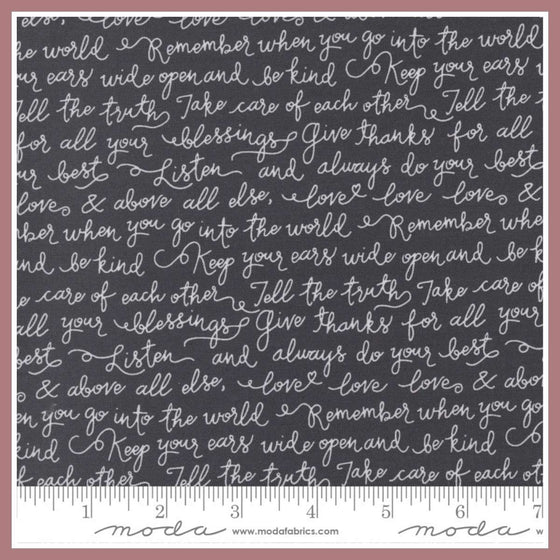 else, love love love &
he world Remember when you go into the world
ur ears wide open and be kind Keep your ears w
Tell the truth Take care of each other Tell the t
for all your blessings Give thanks for all
ur best Listen and always do your best
love & above all else, love love love &
ber when you go into the world Remember whe
nd be kind Keep your ears wide open and be k
e care of each other Tell the truth Take care of
all your blessings Give thanks for all your
best Listen and always do your best
& above all else, love love love & abo
en you go into the world Remember when you go
kind Keep your ears wide open and be kind
f each other Tell the truth Take care of each ot
1 2 3 4 5 6 7
moda www.modafabrics.com moda w